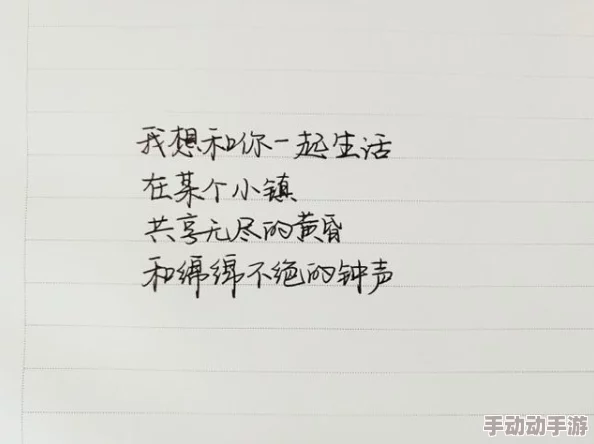 我想和你一起生活
在某个小镇
共享无尽的黄昏
和绵绵不绝的钟声
手动动手游